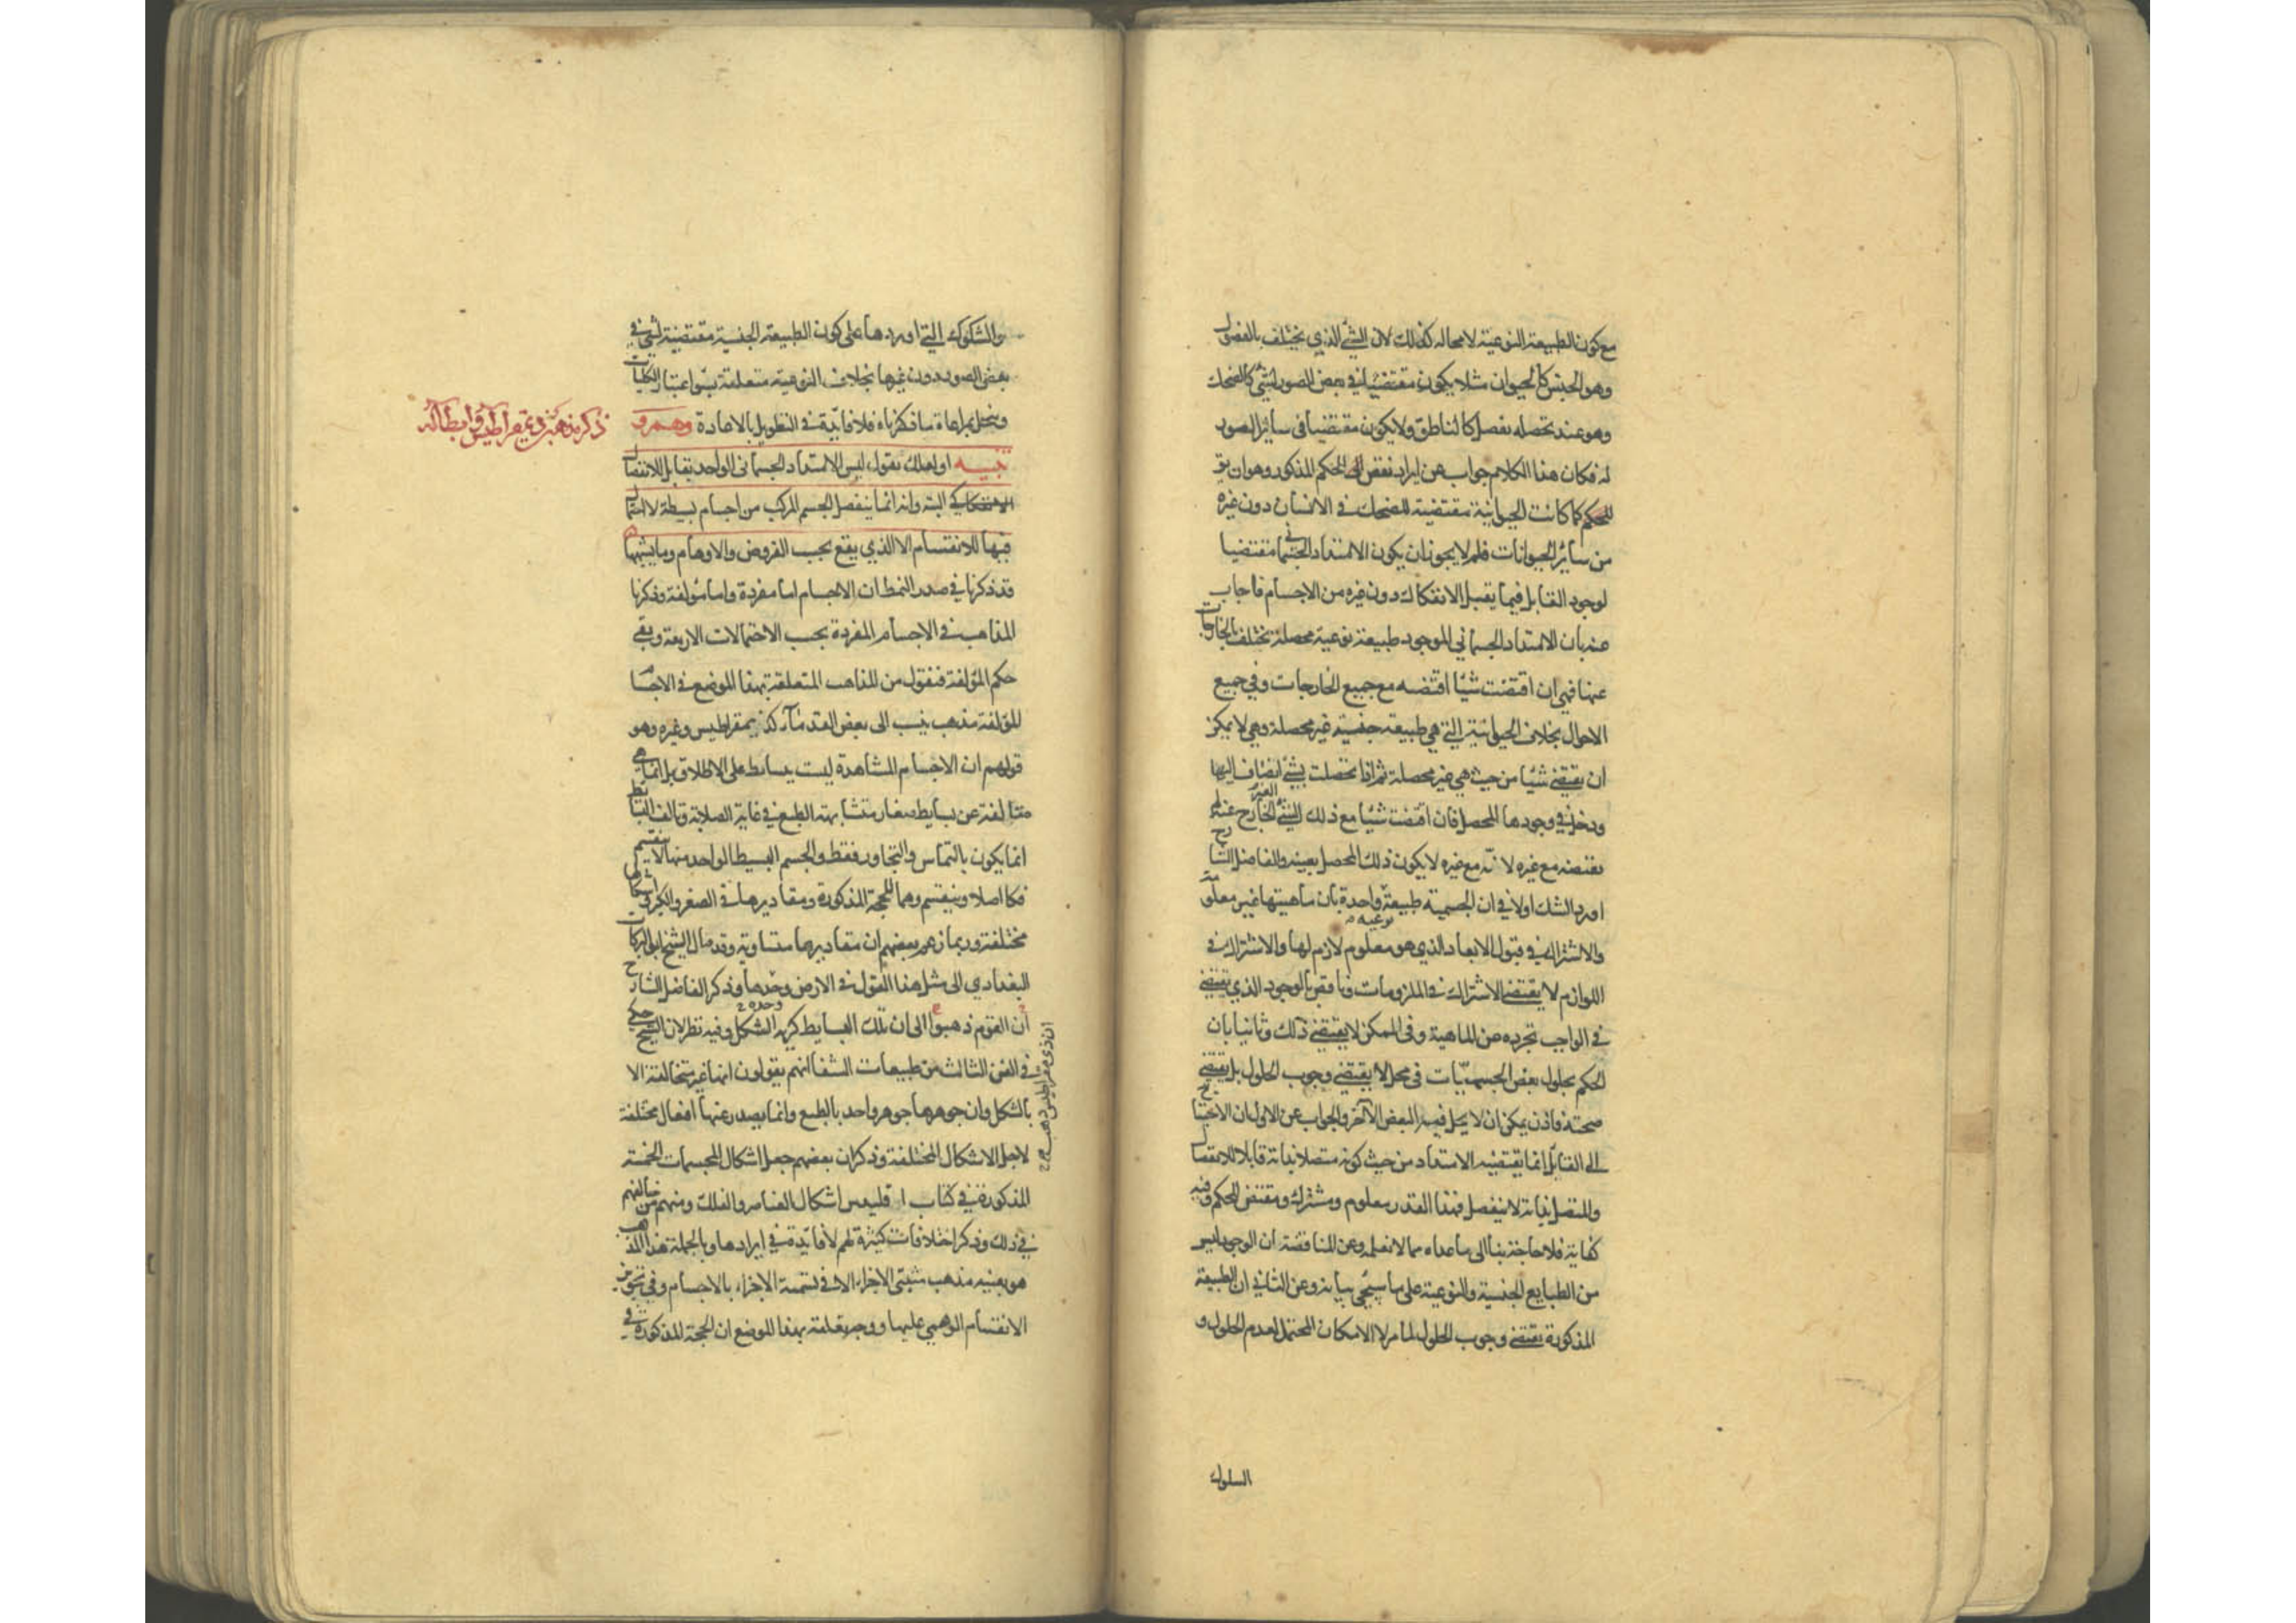 مع كون الطبيعة النوعية لا محالة كذلك لان الشئ الذي يختلف بالفصول
وهو الجنس كالحيوان مثلا يكون مقتضيا في بعض الصور لشئ كالضحك
وهو عند تحصله بفصل كالناطق ولا يكون مقتضيا في سائر الصور
له فكان هذا الكلام جواب عن ايراد نقض الحكم المذكور وهو ان يق
للحكم كما كانت الحيوانية مقتضية للضحك في الانسان دون غيره
من سائر الحيوانات فلم لا يجوز ان يكون الامتداد الجسماني مقتضيا
لوجود القابل فيما يقبل الانفكاك دون غيره من الاجسام فاجاب
عنه بان الامتداد الجسماني الموجود طبيعة نوعية محصلة تختلف بالخارجات
عنها فهي ان اقتضت شيئا اقتضه مع جميع الخارجات وفي جميع
الاحوال بخلاف الحيوانية التي هي طبيعة جنسية غير محصلة وهي لا يمكن
ان يقتضي شيئا من حيث هي غير محصلة ثم اذا تحصلت بشئ انضاف اليها
ودخل في وجودها المحصل فان اقتضت شيئا مع ذلك الشئ الغير الخارج عنها لم
يقتضه مع غيره لانه مع غيره لا يكون ذلك المحصل بعينه والفاضل الشارح
اورد الشك اولا في ان الجسمية طبيعة نوعية واحدة بان ماهيتها غير معلومة
والاشتراك في قبول الابعاد الذي هو معلوم لازم لها والاشتراك في
اللوازم لا يقتضي الاشتراك في الملزومات وناقض بالوجود الذي يقتضي
في الواجب تجرده عن الماهية وفي الممكن لا يقتضي ذلك وثانيا بان
الحكم بحلول بعض الجسميات في محل لا يقتضي وجوب الحلول بل يقتضي
صحته فاذن يمكن ان لا يحل فيه البعض الآخر والجواب عن الاول ان الاحتياج
الى القابل انما يقتضيه الامتداد من حيث كونه متصلا بذاته قابلا للانفصال
والمتصل بذاته لا ينفصل فهذا القدر معلوم ومشترك ومقتض للحكم وفيه
كفاية فلا حاجة بنا الى ما عداه مما لا نعلمه وعن المناقضة ان الوجود ليس
من الطبايع الجنسية والنوعية على ما سيجئ بيانه وعن الثاني ان الطبيعة
المذكورة يقتضي وجوب الحلول لما مر لا الامكان المحتمل لعدم الحلول و
السلوك
والشكوك التي اوردها على كون الطبيعة الجنسية مقتضية لشئ في
بعض الصور دون غيرها بخلاف النوعية متعلقة بسوء اعتبار الكليات
وينحل بمراعاة ما ذكرناه فلا فايدة في التطويل بالاعادة وهم و
تنبيه او لعلك تقول ليس الامتداد الجسماني الواحد بقابل للانفصال
الانفكاكي البتة وانه انما ينفصل الجسم المركب من اجسام بسيطة لا احتمال
فيها للانقسام الا الذي يقع بحسب الفروض والاوهام وما يشبهها
قد ذكرنا في صدر النمط ان الاجسام اما مفردة واما مؤلفة وذكرنا
المذاهب في الاجسام المفردة بحسب الاحتمالات الاربعة وبقي
حكم المؤلفة فنقول من المذاهب المتعلقة بهذا الموضع في الاجسام
المؤلفة مذهب ينسب الى بعض القدماء كذيمقراطيس وغيره وهو
قولهم ان الاجسام المشاهدة ليست بسايط على الاطلاق بل انما هي
متالفة عن بسايط صغار متشابهة الطبع في غاية الصلابة وتالف البسايط
انما يكون بالتماس والتجاور فقط والجسم البسيط الواحد منها لا ينقسم
فكا اصلا وينقسم وهما للحجة المذكورة ومقاديرها في الصغر والكبر واشكالها
مختلفة وربما زعم بعضهم ان مقاديرها متساوية وقد مال الشيخ ابو البركات
البغدادي الى مثل هذا القول في الارض وحدها وذكر الفاضل الشارح
ان القوم ذهبوا الى ان تلك البسايط كرية الشكل وفيه نظر لان الشيخ حكى
في الفن الثالث من طبيعات الشفا انهم يقولون انها غير متخالفة الا
بالشكل وان جوهرها جوهر واحد بالطبع وانما يصدر عنها افعال مختلفة
لاجل الاشكال المختلفة وذكر ان بعضهم جعل اشكال المجسمات الخمسة
المذكورة في كتاب اقليدس اشكال العناصر والفلك ومنهم من خالفهم
في ذلك وذكر اختلافات كثيرة لهم لا فايدة في ايرادها وبالجملة هذا المذهب
هو بعينه مذهب مثبتي الاجزاء الا في تسمية الاجزاء بالاجسام وفي تجويز
الانقسام الوهمي عليها ووجه تعلقه بهذا الموضع ان الحجة المذكورة في
ذكر مذهب ذيمقراطيس وابطاله